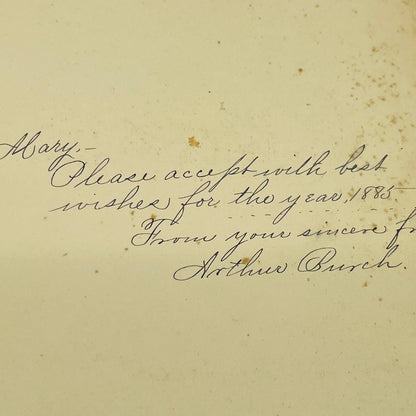 Mary,—
Please accept with best
wishes for the year, 1885
From your sincere fr
Arthur Burch.